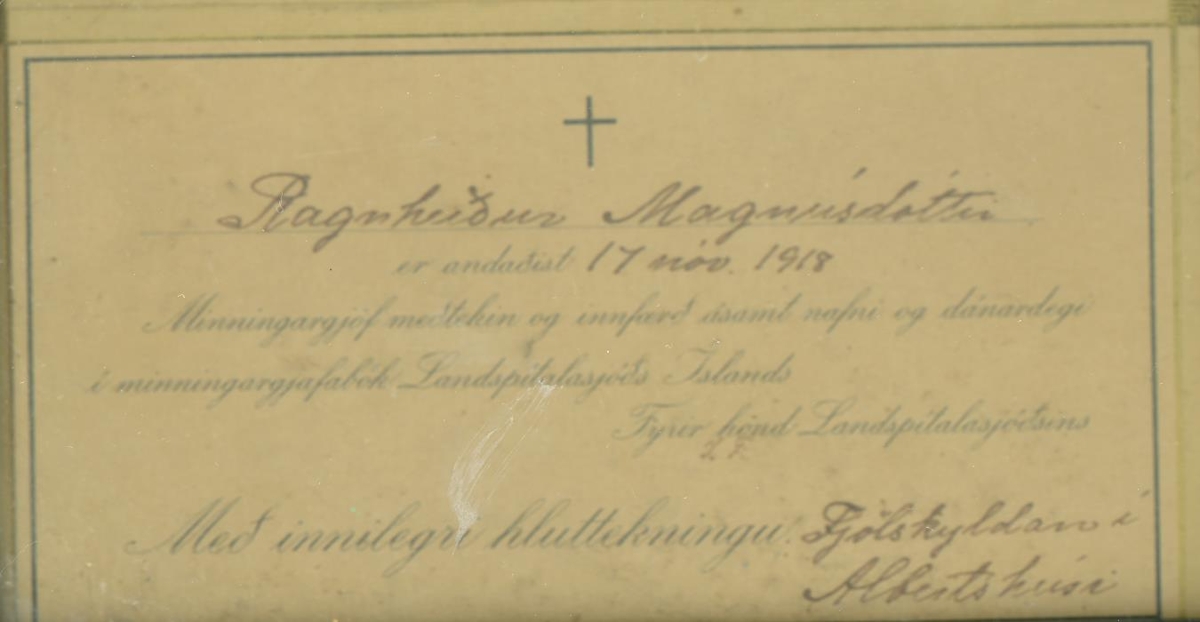 Ragnheiður Magnúsdóttir
er andaðist 17 nóv. 1918
Minningargjöf meðtekin og innfærð ásamt nafni og dánardegi
í minningargjafabók Landspítalasjóðs Íslands
Fyrir hönd Landspítalasjóðsins
Með innilegri hluttekningu. Fjölskyldan í
Albertshúsi